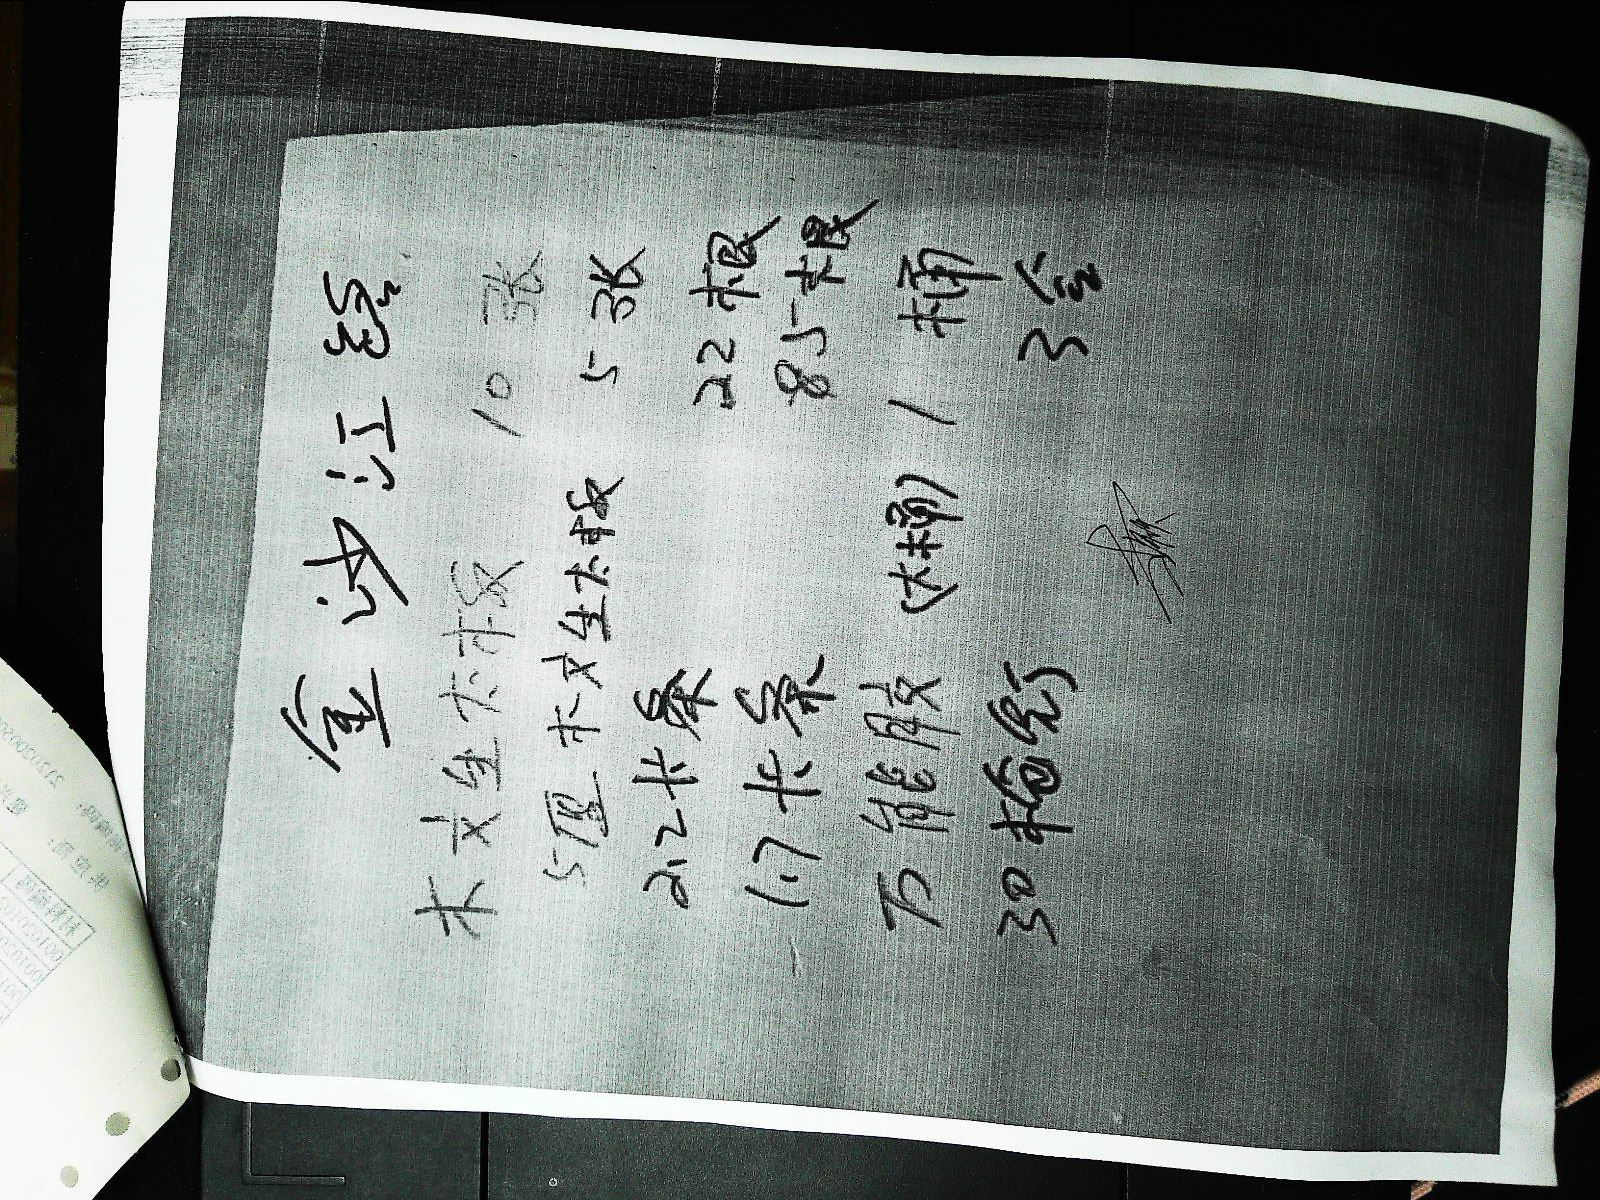 金沙江路
木文生太板 10 张
5厘 木文生太板 5 张
2.2卡条 22 根
1.7卡条 85 根
万能胶 (大桶) 1 桶
30枪钉 3 合